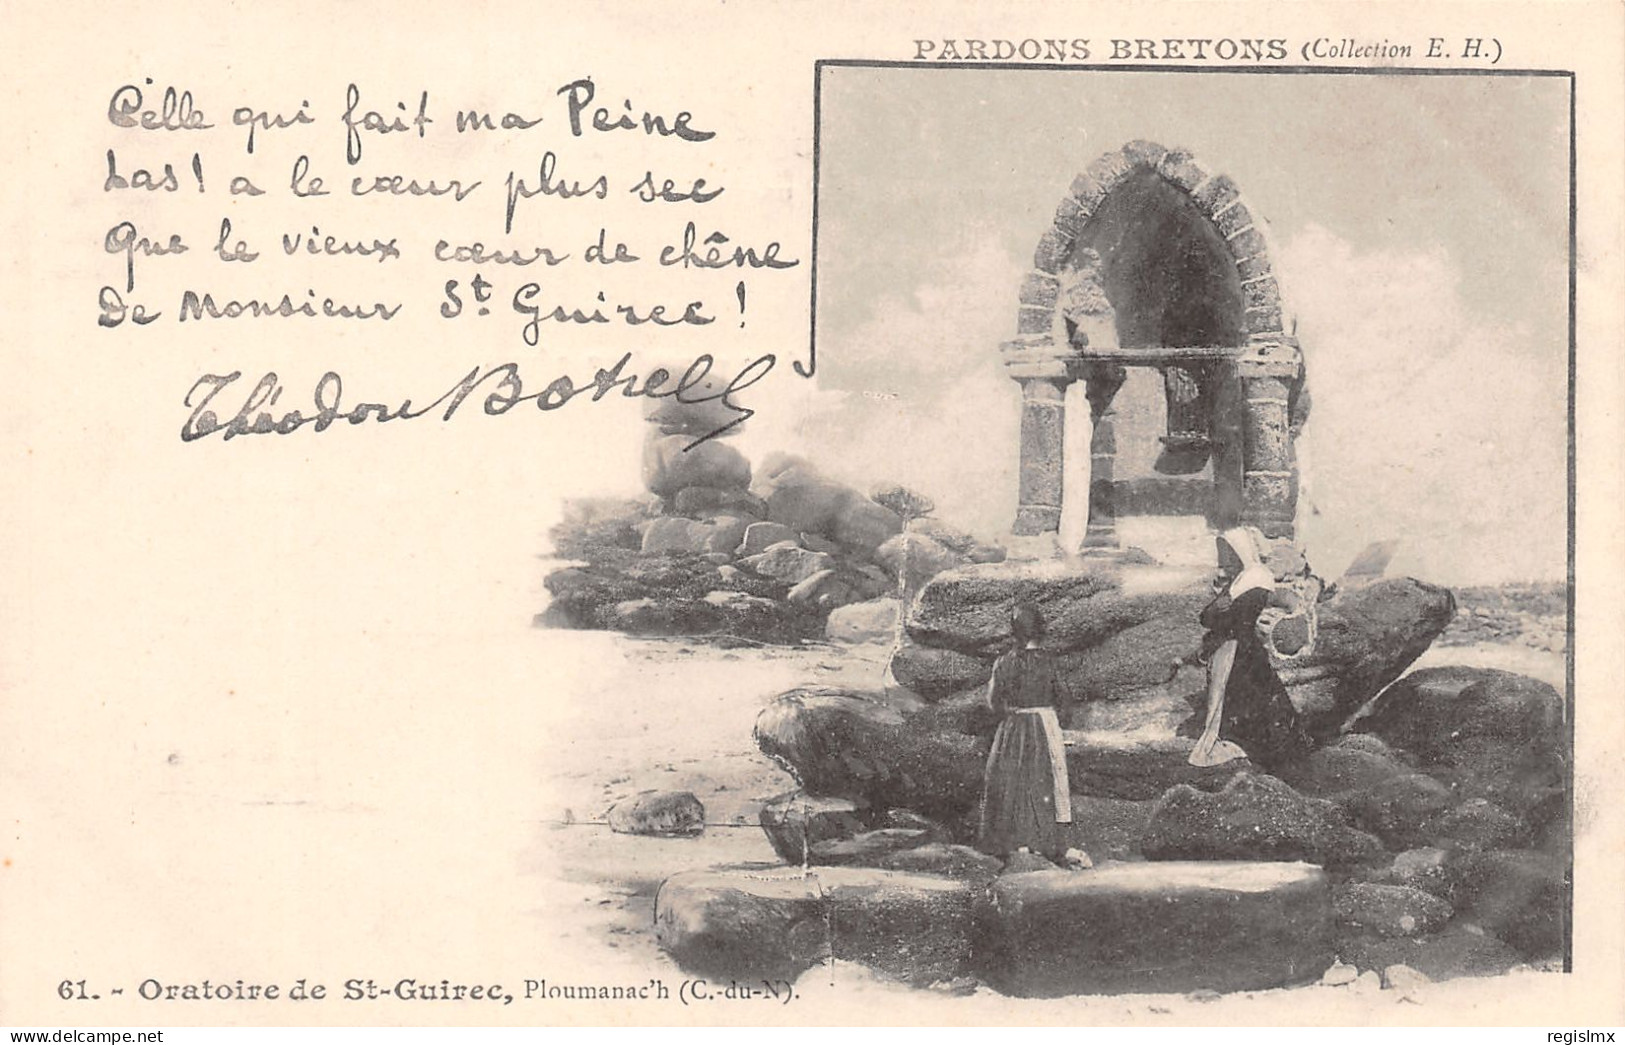 PARDONS BRETONS (Collection E. H.)
Celle qui fait ma Peine
Las! a le cœur plus sec
Que le vieux cœur de chêne
De Monsieur St. Guirec !
Théodore Botrel
61. - Oratoire de St-Guirec, Ploumanac'h (C.-du-N).
regislmx